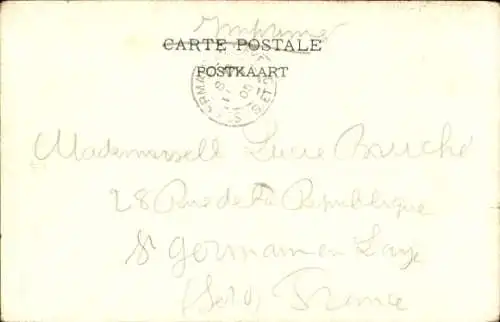 Imprimé
CARTE POSTALE
POSTKAART
Mademoiselle Lucie Bruché
28 Rue de la République
St Germain en Laye
(S et O) France